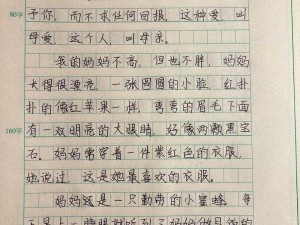 予你,而不求任何回报,这种爱,叫
80字
母爱,这个人,叫母亲。
我的妈妈不高,但也不胖,妈妈
大得很漂亮,一张圆圆的小脸,红扑
扑的像红苹果一样,弯弯的眉毛下面
160字
有一双明亮的大眼睛,好像两颗黑宝
石。妈妈常穿着一件紫红色的衣服,
她说过,这是她最喜欢的衣服。
妈妈这是一只勤劳的小蜜蜂,每
天早上一睁眼就听到了妈妈做早饭的